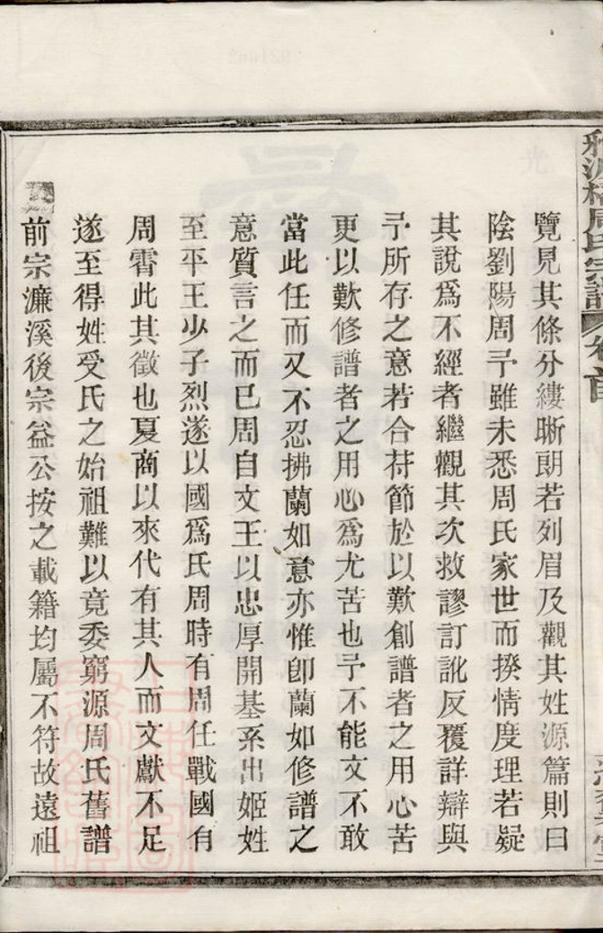 周氏宗譜 卷首
覽見其條分縷晰朗若列眉及觀其姓源篇則曰
陰劉陽周予雖未悉周氏家世而揆情度理若疑
其說爲不經者繼觀其次救謬訂訛反覆詳辯與
予所存之意若合苻節於以歎創譜者之用心苦
更以歎修譜者之用心爲尤苦也予不能文不敢
當此任而又不忍拂蘭如意亦惟卽蘭如修譜之
意質言之而已周自文王以忠厚開基系出姬姓
至平王少子烈遂以國爲氏周時有周任戰國有
周霄此其徵也夏商以來代有其人而文獻不足
遂至得姓受氏之始祖難以竟委窮源周氏舊譜
前宗濂溪後宗益公按之載籍均屬不符故遠祖